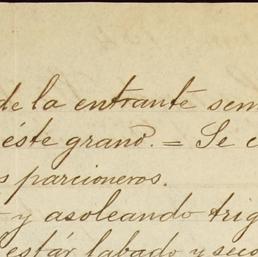 de la entrante sem
éste grano. = Se c
s parcioneros.
y asoleando trig
estár labado y seco